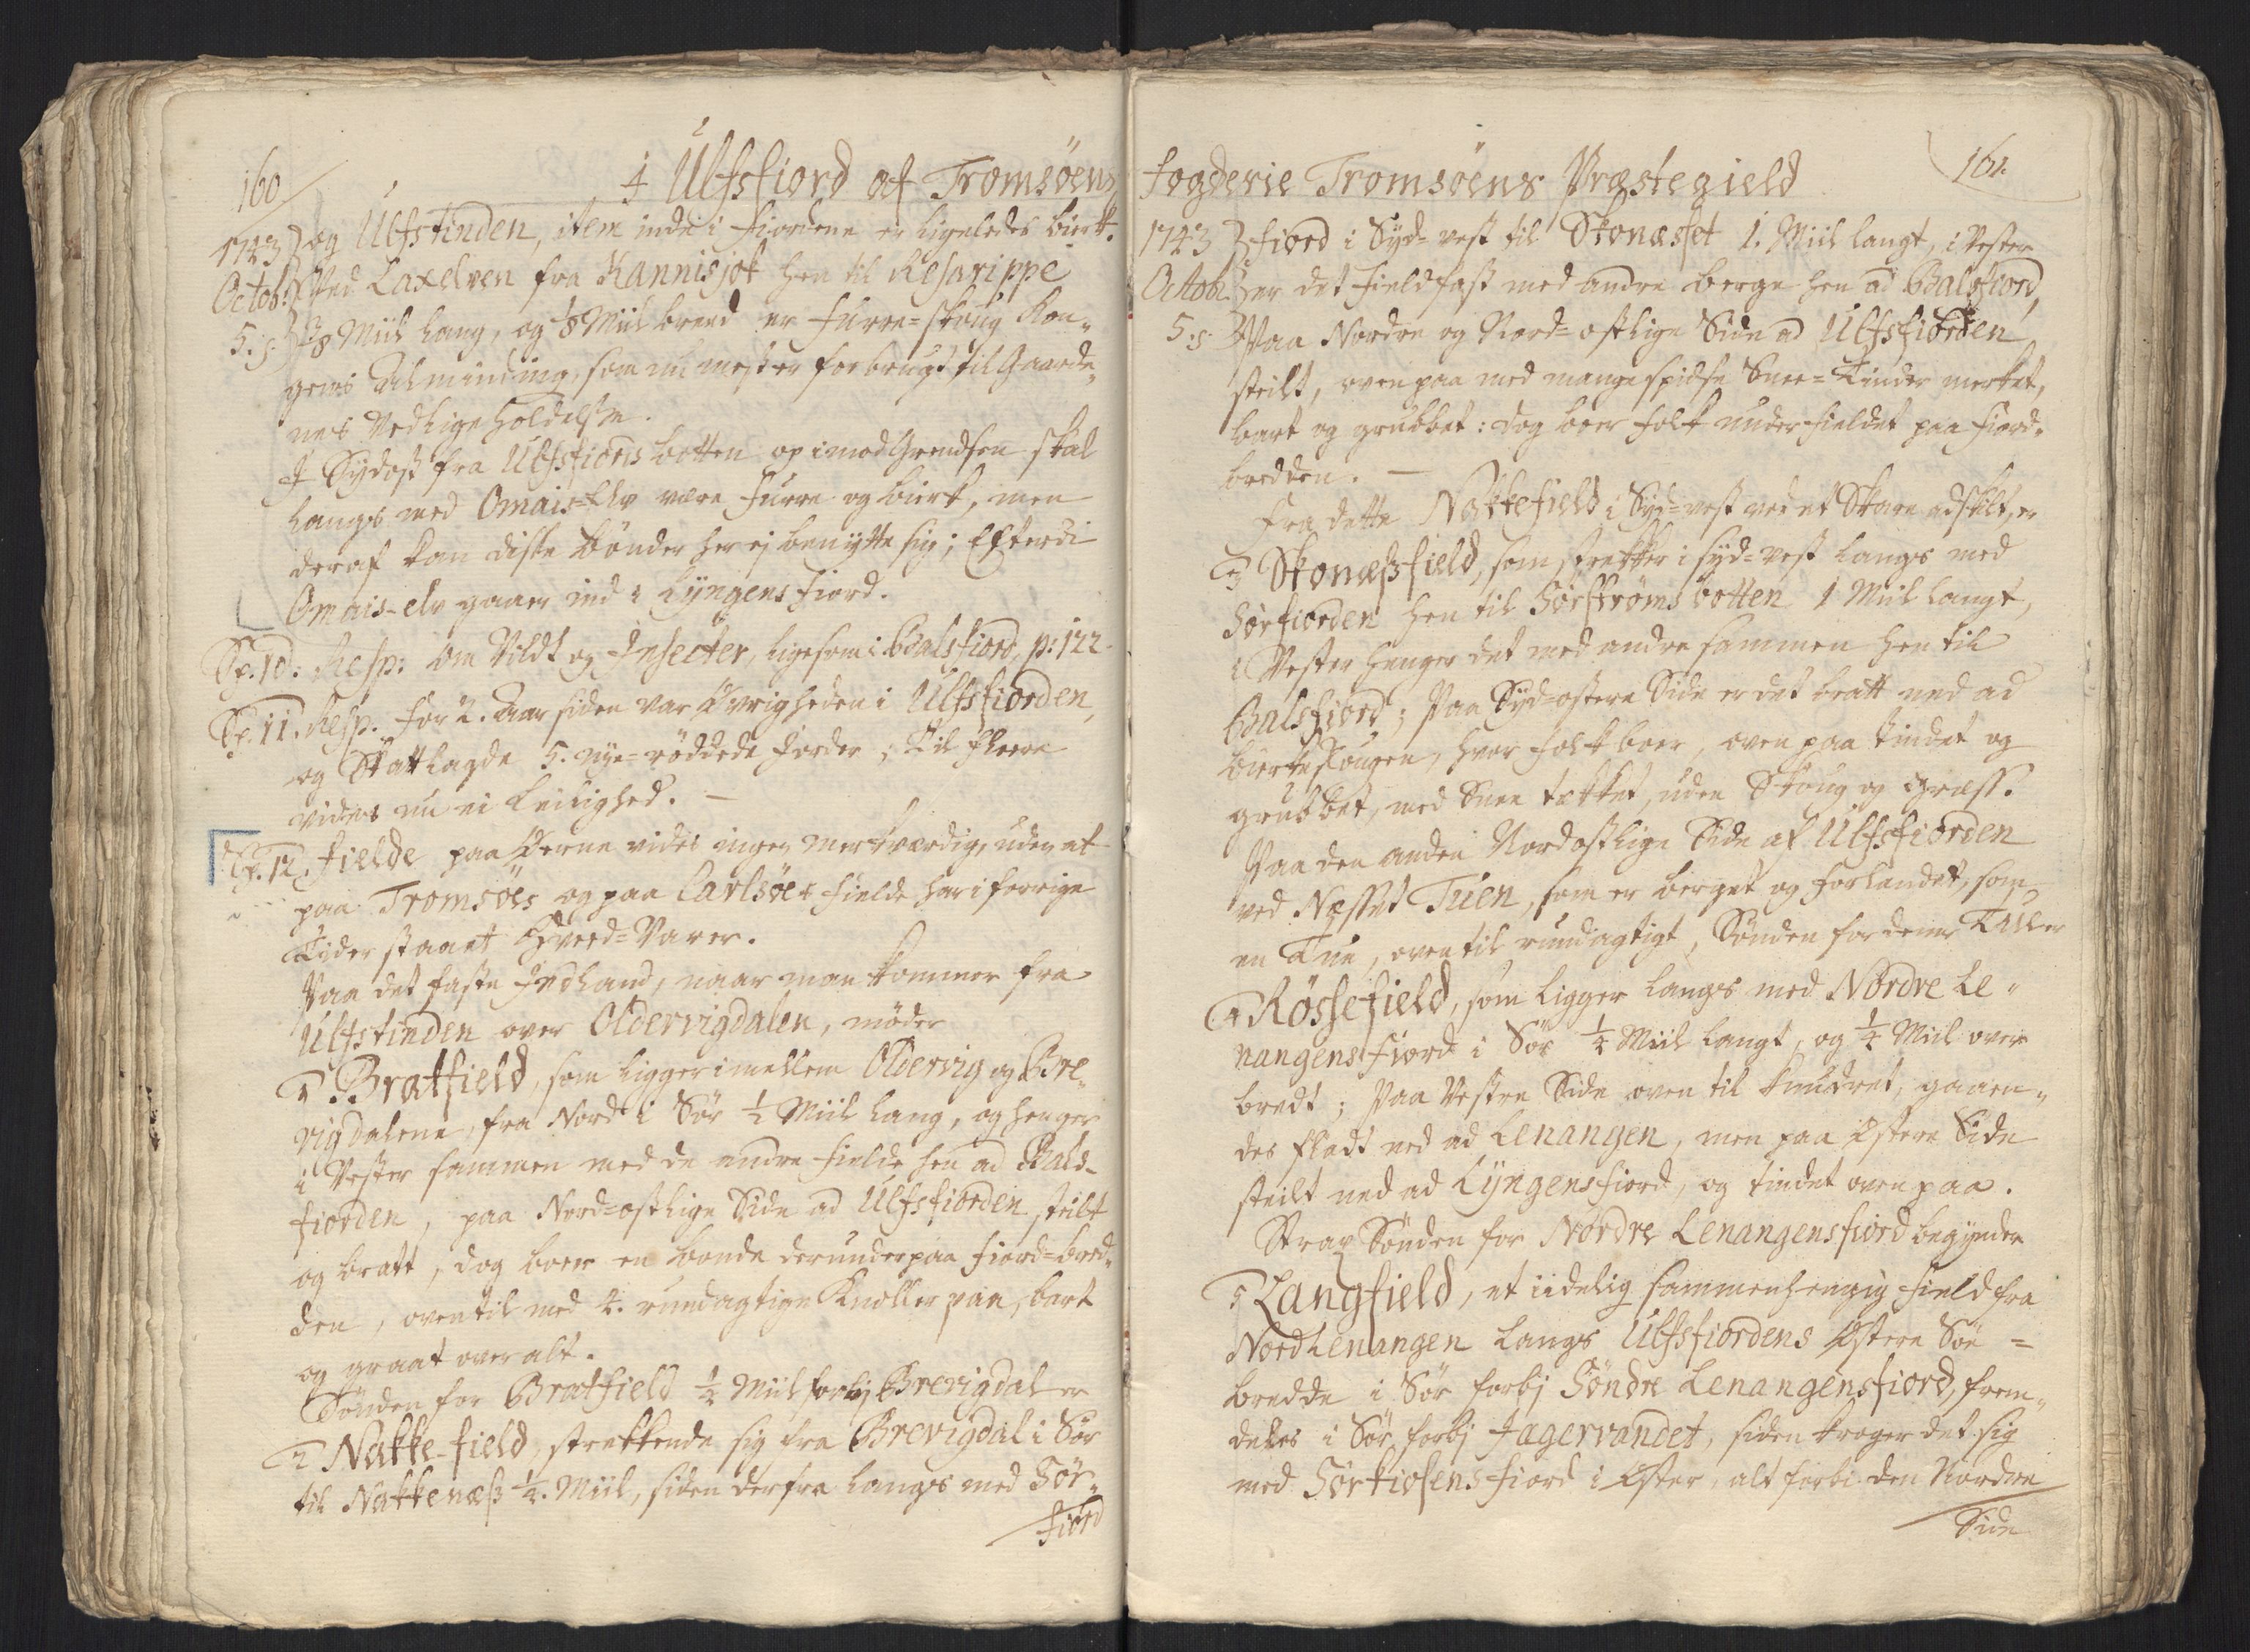 160
I Ulfsfiord af Tromsöens
1743 og Ulfstinden, item inde i fiordene er ligeledes birk.
Octob: Ved Laxelven fra Kannisjok hen til Resarippe
5. s. 3/8 Miil lang, og 1/8 Miil breed er furre-skoug Kon-
gens Alminding, som nu mest er forbrugt til Gaarde-
nes Vedligeholdelse.
I Sydost fra Ulfsfiords botten op imod Grendsen skal
langs med Omais-Elv være furre og birk, men
deraf kan disse bönder her ej benytte sig; Efterdi
Omais-elv gaaer ind i Lyngens fiord.
Sp. 10. Resp: Om Vildt og Insecter, ligesom i Balsfiord, p: 122.
Sp. 11. Resp. for 2. Aar siden var Øvrigheden i Ulfsfiorden,
og Skattlagde 5. nye-röddede Jorder; Til fleere
vides nu ei Leilighed. —
Sp. 12. Fielde paa Øerne vides ingen merkværdig, uden at
paa Tromsöes og paa Carlsöe fielde har i forrige
Tider staaet Hveed-Varer.
Paa det faste Indland, naar man kommer fra
Ulfstinden over Oldervigdalen, möder
1 Bratfield, som ligger imellem Oldervig og Bre-
vigdalene, fra Nord i Sör 1/2 Miil lang, og henger
i Vester sammen med de andre fielde hen ad Bals-
fiorden, paa Nord-ostlige Side ad Ulfsfiorden steilt
og bratt, dog boer en bonde derunder paa fiord-bred-
den, oventil med 4. rundagtige Knoller paa, bart
og graat over alt.
Sönden for Bratfield 1/4 Miil forbj Brevigdal er
2 Nakke-field, strekkende sig fra Brevigdal i Sör
til Nakkenæss 1/4. Miil, siden derfra langs med Sör-
fiord
Fogderie Tromsöens Præstegield
161.
1743 fiord i Syd-vest til Skonæsset 1. Miil langt, i Vester
Octob. er det fieldfast med andre berge hen ad Balsfiord,
5. s. Paa Nordre og Nord-ostlige Side ad Ulfsfiorden
steilt, oven paa med mange spidse Snee-Tinder merket,
bart og grubbet: dog boer folk under fieldet paa fiord-
bredden. —
Fra dette Nakkefield i Syd-vest ved et Skare adskilt, er
3 Skonæssfield, som strekker i syd-vest langs med
Sörfiorden hen til Sörströmsbotten 1 Miil langt,
i Vester henger det med andre sammen hen til
Balsfiord; Paa Syd-ostere Side er det bratt ned ad
birkeskougen, hvor folk boer, oven paa tindet og
grubbet, med Snee tekket, uden Skoug og græss.
Paa den anden Nordostlige Side af Ulfsfiorden
ved Næsset Tuen, som er berget og forlandet, som
en Tue, oventil rundagtigt, Sönden for denne Tue er
4 Rössefield, som ligger langs med Nordre Le-
nangens fiord i Sör 1/4 Miil langt, og 1/4 Miil over
bredt; Paa Vestre Side oven til knudret, gaaen-
des fladt ned ad Lenangen, men paa Østere Side
steilt ned ad Lyngensfiord, og tindet oven paa.
Strax Sönden for Nordre Lenangensfiord begynder
5 Langfield, et iidelig sammenhengig field fra
NordLenangen langs Ulfsfiordens Østere Söe-
bredde i Sör forbj Söndre Lenangensfiord, frem-
deles i Sör forbj Jagervandet, siden kroger det sig
med Sörkiosens fiord i Øster, alt forbi den Nordre
Side